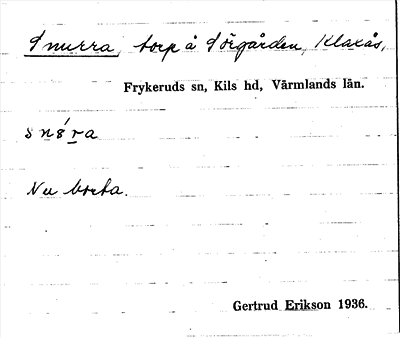 Snurra, torp å Sörgården, Klaxås,
Frykeruds sn, Kils hd, Värmlands län.
snɵ́ra
Nu borta.
Gertrud Erikson 1936.